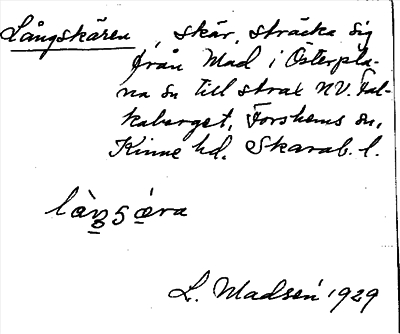 Långskären, skär, sträcka sig
från Mad i Österpla-
na sn till strax NV. Fal-
kaberget, Forshems sn,
Kinne hd. Skarab. l.
L. Madsén 1929